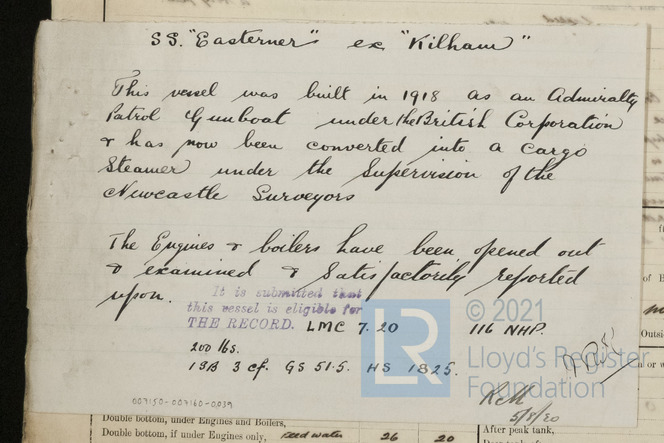 SS. "Easterner" ex "Kilham"
This vessel was built in 1918 as an Admiralty
Patrol Gunboat under the British Corporation
& has now been converted into a Cargo
Steamer under the Supervision of the
Newcastle Surveyors
The Engines & boilers have been opened out
& examined & Satisfactorily reported
upon.
It is submitted that
this vessel is eligible for
THE RECORD. LMC 7.20 116 NHP.
200 lbs.
1SB 3 cf. GS 51.5. HS 1825.
LR
© 2021
Lloyd's Register
Foundation
5/8/20
007150-007160-0039
Double bottom, under Engines and Boilers,
Double bottom, if under Engines only, Feed water 26 20
After peak tank,